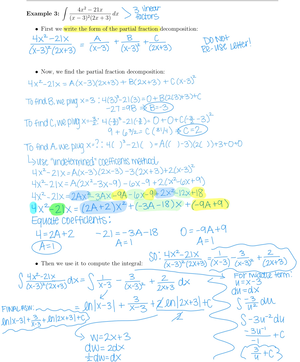 Example 3: ∫ (4x² − 21x)/((x−3)²(2x+3)) dx > 3 linear factors
• First we write the form of the partial fraction decomposition:
(4x²−21x)/((x−3)²(2x+3)) = A/(x−3) + B/(x−3)² + C/(2x+3) DO NOT RE-USE Letters!
• Now, we find the partial fraction decomposition:
4x²−21x = A(x−3)(2x+3) + B(2x+3) + C(x−3)²
To find B, we plug x=3: 4(3)²−21(3) = 0+B(2(3)+3)+C
−27 = 9B B=−3
To find C, we plug x=−3/2: 4(−3/2)²−21(−3/2) = 0+0+C(−3/2−3)²
C=2
To find A, we plug x=?: 4( )²−21( ) = A( )( )+0+0
↳ use "undetermined" coefficients method
4x²−21x = A(x−3)(2x−3)−3(2x+3)+2(x−3)²
4x²−21x = A(2x²−3x−9)−6x−9+2(x²−6x+9)
4x²−21x = 2Ax²−3Ax−9A−6x−9+2x²−12x+18
4x²−21x = (2A+2)x²+(−3A−18)x+(−9A+9)
Equate coefficients:
4=2A+2 −21=−3A−18 0=−9A+9
A=1 A=1 A=1
SO: (4x²−21x)/((x−3)²(2x+3)) = 1/(x−3) − 3/(x−3)² + 2/(2x+3)
• Then we use it to compute the integral:
∫ (4x²−21x)/((x−3)²(2x+3)) dx = ∫ 1/(x−3) − 3/(x−3)² + 2/(2x+3) dx
For middle term:
u=x−3
du=dx
∫ −3/u² du
∫ −3u⁻² du
−3u⁻¹/−1
3/u + C
FINAL ANS:
ln|x−3| + 3/(x−3) + ln|2x+3| + C
= ln|x−3| + 3/(x−3) + 2 ln|2x+3|/2 + C
↳ w=2x+3
dw=2dx
½dw=dx